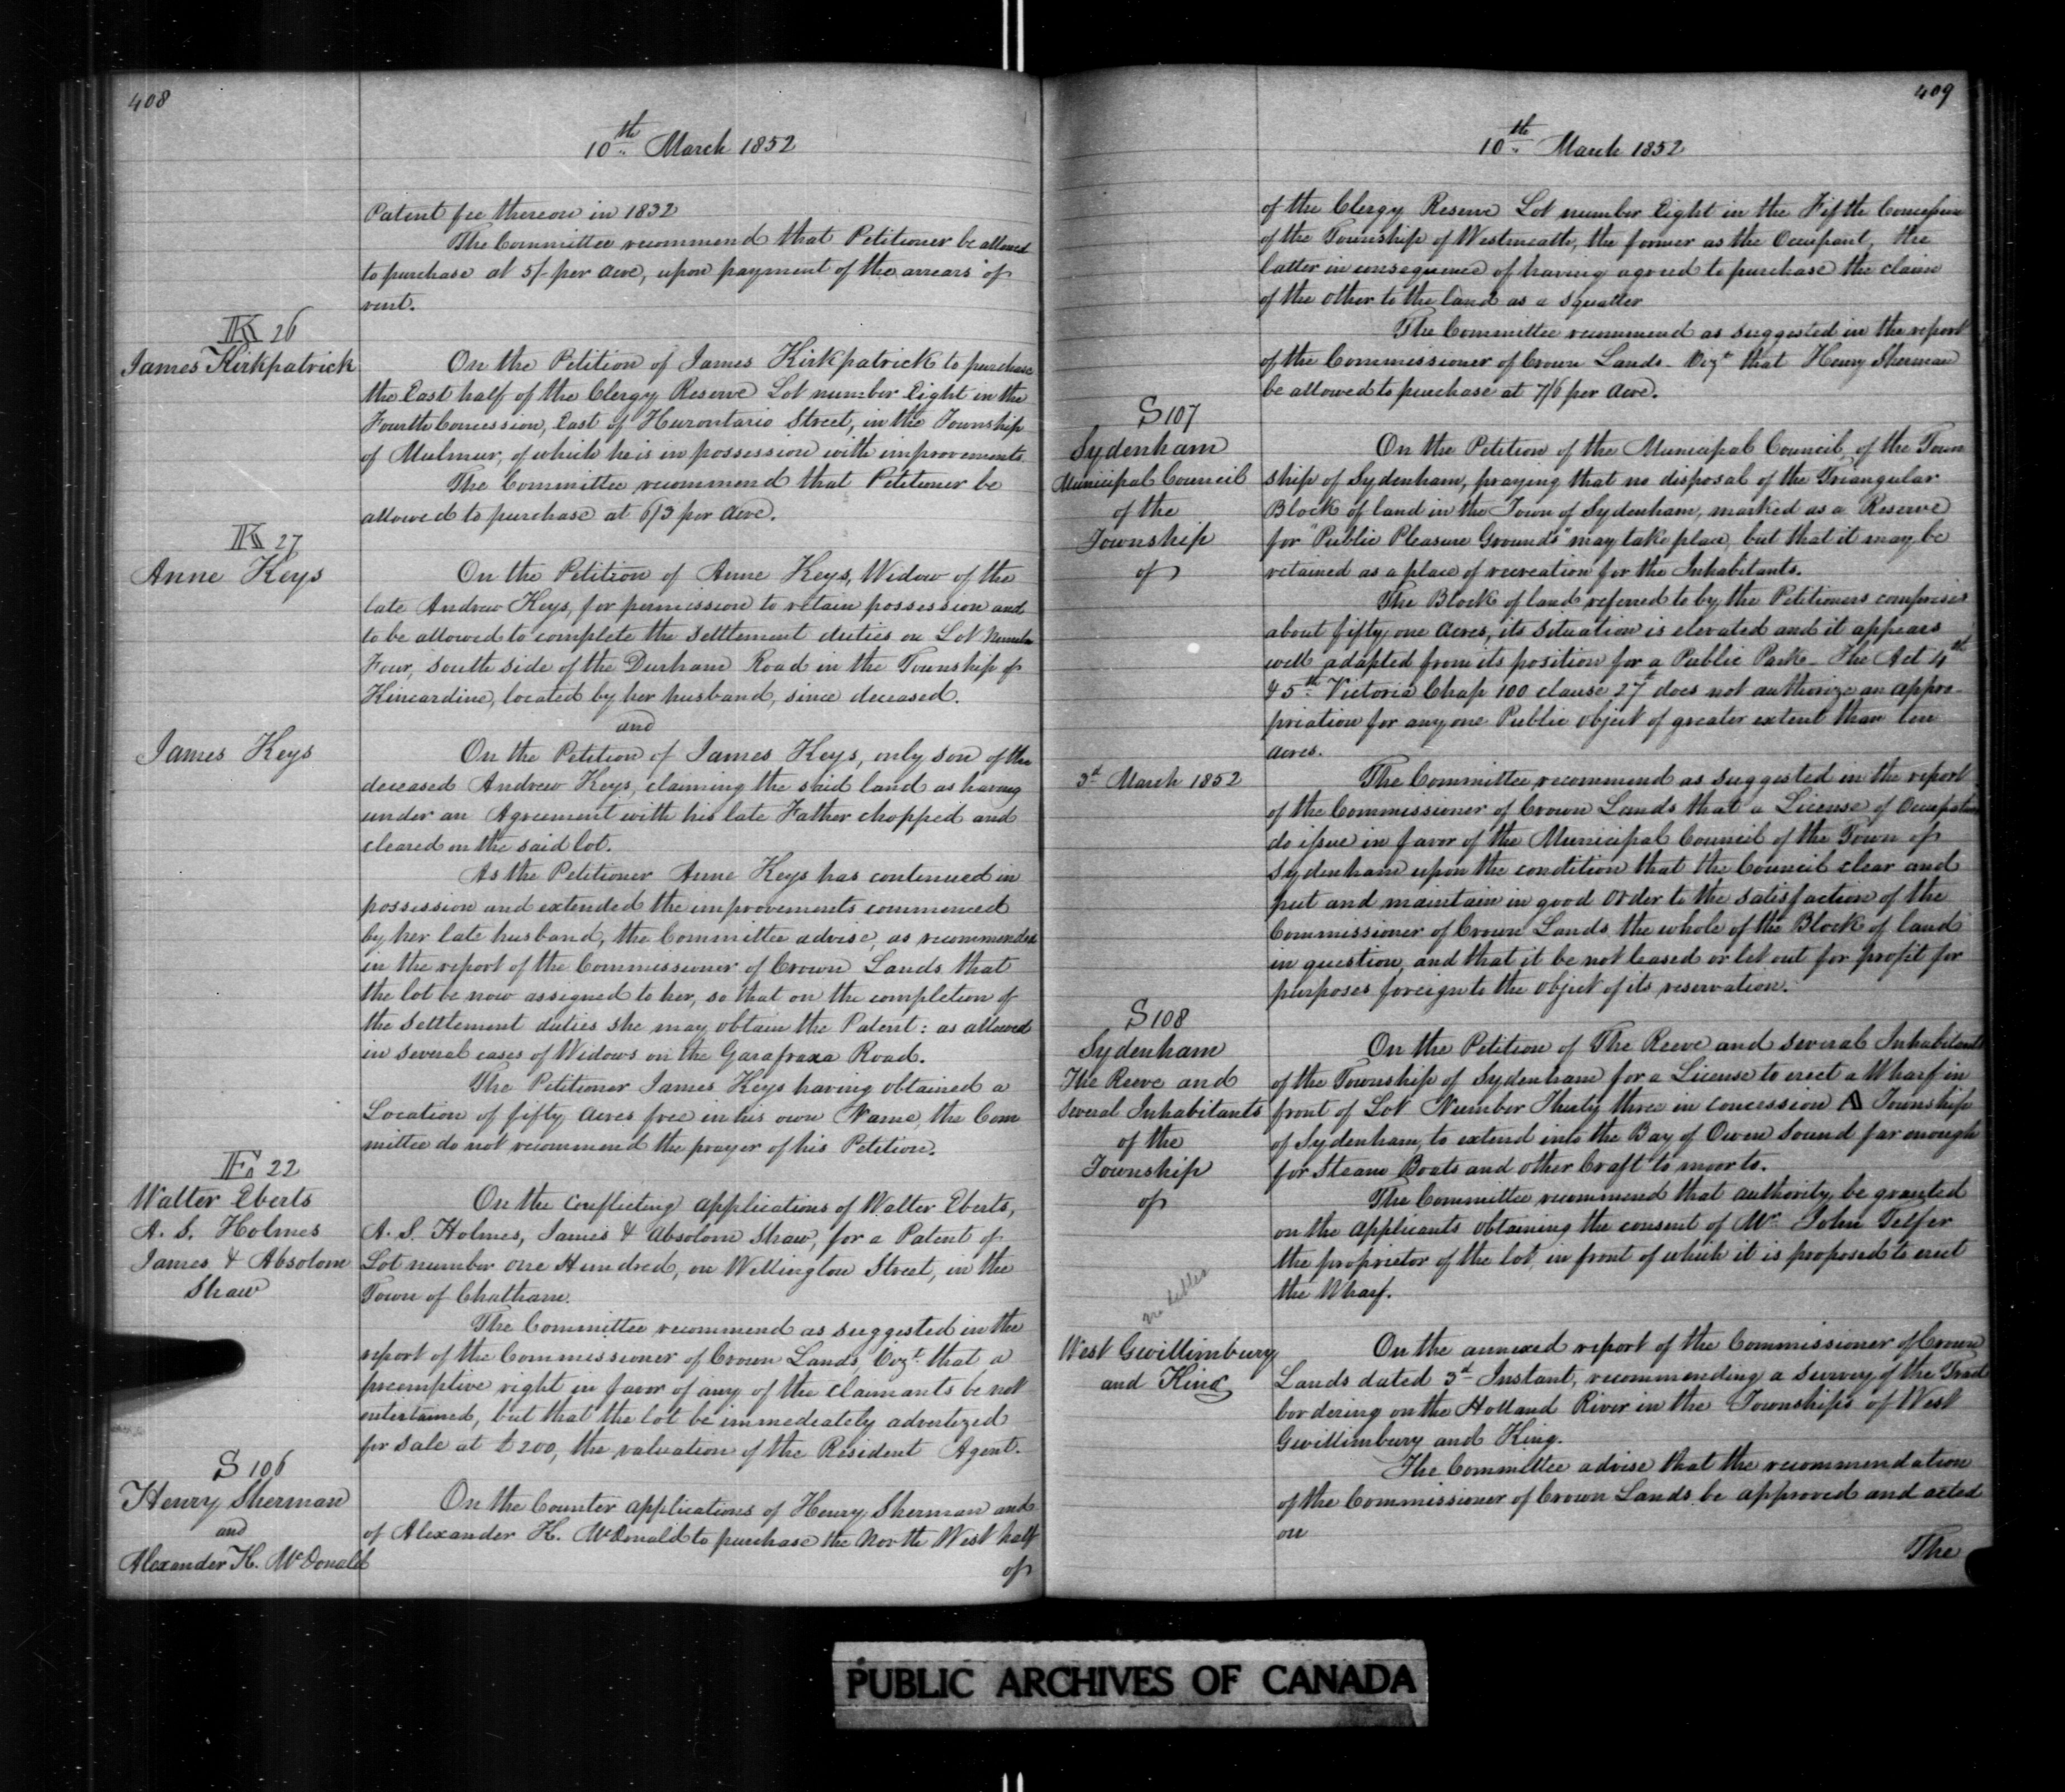 408
10th March 1852
Patent fee thereon in 1832
The Committee recommend that Petitioner be allowed
to purchase at 5/- per acre, upon payment of the arrears of
rent.
K 26
James Kirkpatrick
On the Petition of James Kirkpatrick to purchase
the East half of the Clergy Reserve Lot number Eight in the
Fourth Concession, East of Hurontario Street, in the Township
of Mulmur, of which he is in possession with improvements.
The Committee recommend that Petitioner be
allowed to purchase at 6/3 per acre.
K 27
Anne Keys
On the Petition of Anne Keys, Widow of the
late Andrew Keys, for permission to retain possession and
to be allowed to complete the settlement duties on Lot Number
Four, South side of the Durham Road in the Township of
Kincardine, located by her husband, since deceased.
and
James Keys
On the Petition of James Keys, only son of the
deceased Andrew Keys, claiming the said land as having
under an Agreement with his late Father chopped and
cleared on the said lot.
As the Petitioner Anne Keys has continued in
possession and extended the improvements commenced
by her late husband, the Committee advise, as recommended
in the report of the Commissioner of Crown Lands that
the lot be now assigned to her, so that on the completion of
the settlement duties she may obtain the Patent: as allowed
in several cases of Widows on the Garafraxa Road.
The Petitioner James Keys having obtained a
Location of fifty acres free in his own Name, the Com
mittee do not recommend the prayer of his Petition.
E 22
Walter Eberts
A. S. Holmes
James & Absolom
Shaw
On the conflicting applications of Walter Eberts,
A. S. Holmes, James & Absolom Shaw, for a Patent of
Lot number one Hundred, on Wellington Street, in the
Town of Chatham.
The Committee recommend as suggested in the
report of the Commissioner of Crown Lands, Vizt that a
preemptive right in favor of any of the claimants be not
entertained, but that the lot be immediately advertized
for sale at £200, the valuation of the Resident Agent.
S 106
Henry Sherman
and
Alexander K. McDonald
On the Counter applications of Henry Sherman and
of Alexander K. McDonald to purchase the North West half
of
409
10th March 1852
of the Clergy Reserve Lot number Eight in the Fifth Concession
of the Township of Westmeath, the former as the Occupant, the
latter in consequence of having agreed to purchase the claim
of the other to the land as a squatter
The Committee recommend as suggested in the report
of the Commissioner of Crown Lands - Vizt that Henry Sherman
be allowed to purchase at 7/6 per acre.
S 107
Sydenham
Municipal Council
of the
Township
of
On the Petition of the Municipal Council, of the Town
ship of Sydenham, praying that no disposal of the Triangular
Block of land in the Town of Sydenham, marked as a Reserve
for "Public Pleasure Grounds" may take place, but that it may be
retained as a place of recreation for the Inhabitants.
The Block of land referred to by the Petitioners comprises
about fifty one acres, its situation is elevated and it appears
well adapted from its position for a Public Park - The Act 4th
& 5th Victoria Chap 100 clause 27th does not authorize an appro-
priation for any one Public object of greater extent than ten
acres.
3d March 1852
The Committee recommend as suggested in the report
of the Commissioner of Crown Lands that a License of Occupation
do issue in favor of the Municipal Council of the Town of
Sydenham upon the condition that the Council clear and
put and maintain in good order to the satisfaction of the
Commissioner of Crown Lands the whole of the Block of land
in question, and that it be not leased or let out for profit for
purposes foreign to the object of its reservation.
S 108
Sydenham
The Reeve and
Several Inhabitants
of the
Township
of
On the Petition of The Reeve and several Inhabitants
of the Township of Sydenham for a License to erect a Wharf in
front of Lot Number Thirty three in concession A Township
of Sydenham, to extend into the Bay of Owen Sound far enough
for Steam Boats and other Craft to moor to.
The Committee recommend that authority be granted
on the applicants obtaining the consent of Mr. John Telfer
the proprietor of the lot, in front of which it is proposed to erect
the Wharf.
West Gwillimbury
and King
On the annexed report of the Commissioner of Crown
Lands dated 3d Instant, recommending a Survey of the Tract
bordering on the Holland River in the Townships of West
Gwillimbury and King.
The Committee advise that the recommendation
of the Commissioner of Crown Lands be approved and acted
on
The
PUBLIC ARCHIVES OF CANADA